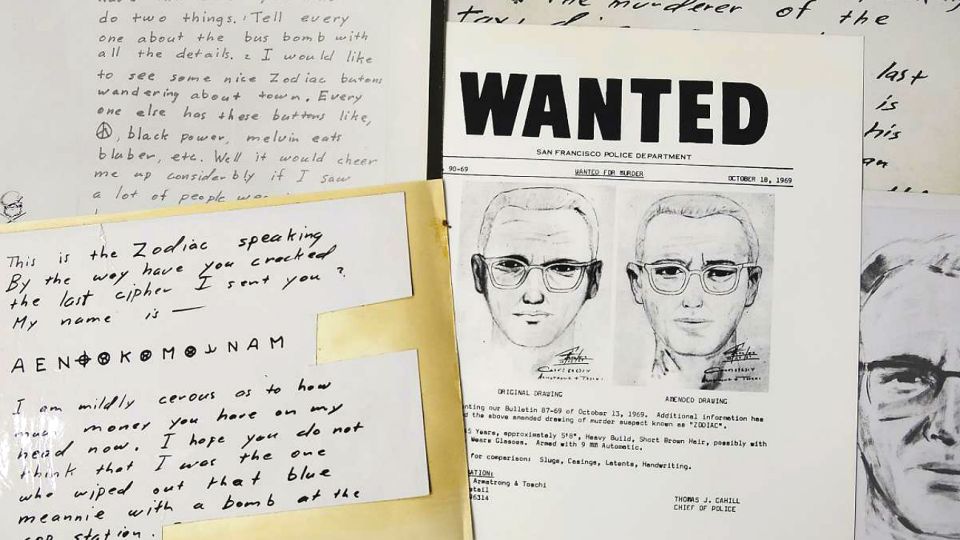 do two things. 1 Tell every
one about the bus bomb with
all the details. 2 I would like
to see some nice Zodiac butons
wandering about town. Every
one else has these buttons like,
☮, black power, melvin eats
bluber, etc. Well it would cheer
me up considerbly if I saw
a lot of people
This is the Zodiac speaking
By the way have you cracked
the last cipher I sent you?
My name is —
A E N ⊕ ⊗ K ⊗ M ⊗ ⅃ N A M
I am mildly cerous as to how
much money you have on my
head now. I hope you do not
think that I was the one
who wiped out that blue
meannie with a bomb at the
cop station.
The murderer of the
last
is
his
WANTED
SAN FRANCISCO POLICE DEPARTMENT
90-69 WANTED FOR MURDER OCTOBER 18, 1969
ORIGINAL DRAWING AMENDED DRAWING
nting our Bulletin 87-69 of October 13, 1969. Additional information has
d the above amended drawing of murder suspect known as "ZODIAC".
5 Years, approximately 5'8", Heavy Build, Short Brown Hair, possibly with
Wears Glasses. Armed with 9 MM Automatic.
for comparison: Slugs, Casings, Latents, Handwriting.
ATION:
Armstrong & Toschi
etail
96314
THOMAS J. CAHILL
CHIEF OF POLICE